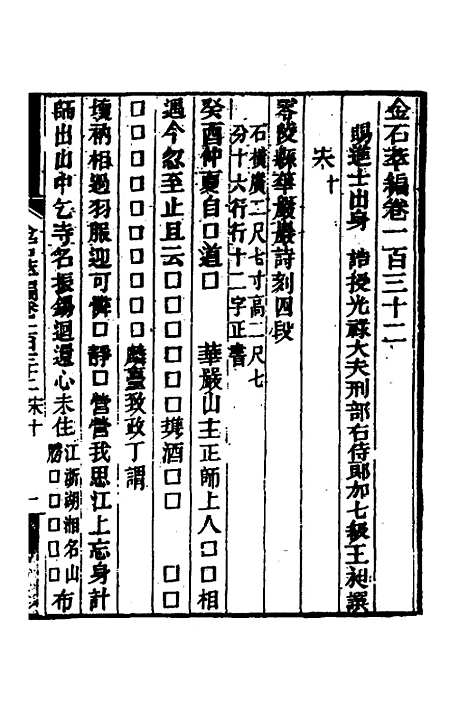 金石萃編卷一百三十二
賜進士出身 誥授光祿大夫刑部右侍郎加七級王昶譔
宋十
零陵縣華嚴巖詩刻四段
石橫廣二尺七寸高二尺七
分十六行行十二字正書
癸酉仲夏自□道□ 華嚴山主正師上人□□相
過今忽至止且云□□□□□□□攜酒□□ □□
□□□□□□□□□麟臺致政丁謂
壞衲相過羽服迎可憐□靜□營營我思江上忘身計
師出山中乞寺名振錫迴還心未住江浙湖湘名山
勝□□□□□布
金石萃編卷一百三十二 宋十 一